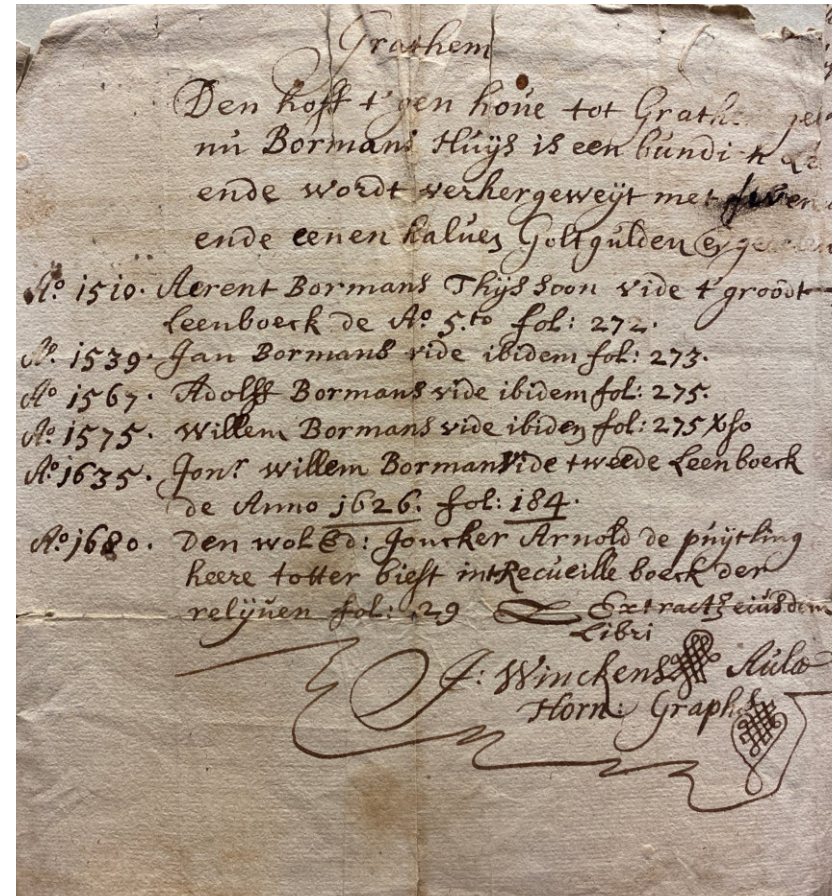 Grathem
Den hoff t'gen houe tot Grath
nu Bormans Huijs is een bundi
ende wordt verhergeweijt met
ende eenen halven Goltgulden
Ao 1510. Aerent Bormans Thijs soon vide t'groodt
Leenboeck de Ao 5.to fol: 272.
Ao 1539. Jan Bormans vide ibidem fol: 273.
Ao 1567. Adolff Bormans vide ibidem fol: 275.
Ao 1575. Willem Bormans vide ibidem fol: 275 vso
Ao 1635. Jonr Willem Bormans vide tweede Leenboeck
de Anno 1626. fol: 184.
Ao 1680. Den wol Ed: Joncker Arnold de puijtling
heere totter biest int Recueille boeck der
relijuen fol: 29 Extract eiusdem
Libri
J: Winckens Aulæ
Horn: Graph